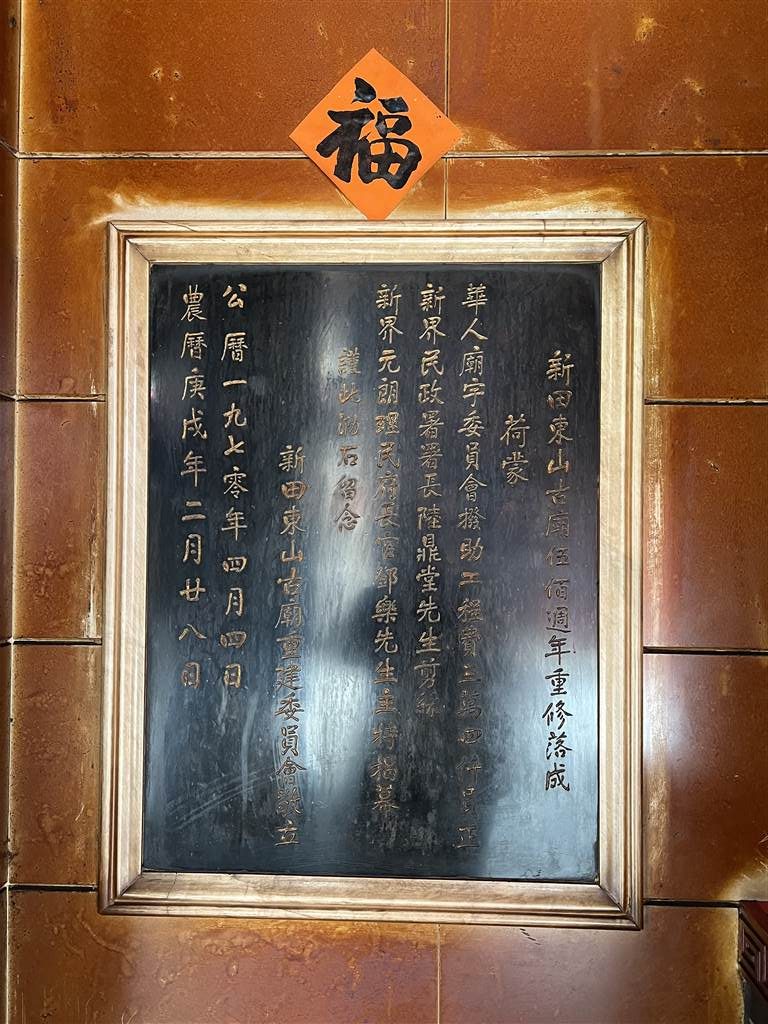 福
新田東山古廟伍佰週年重修落成
荷蒙
華人廟宇委員會撥助工程費三萬四仟員正
新界民政署署長陸鼎堂先生剪綵
新界元朗理民府長官鄧樂先生主持揭幕
謹此泐石留念
新田東山古廟重建委員會敬立
公曆一九七零年四月四日
農曆庚戌年二月廿八日